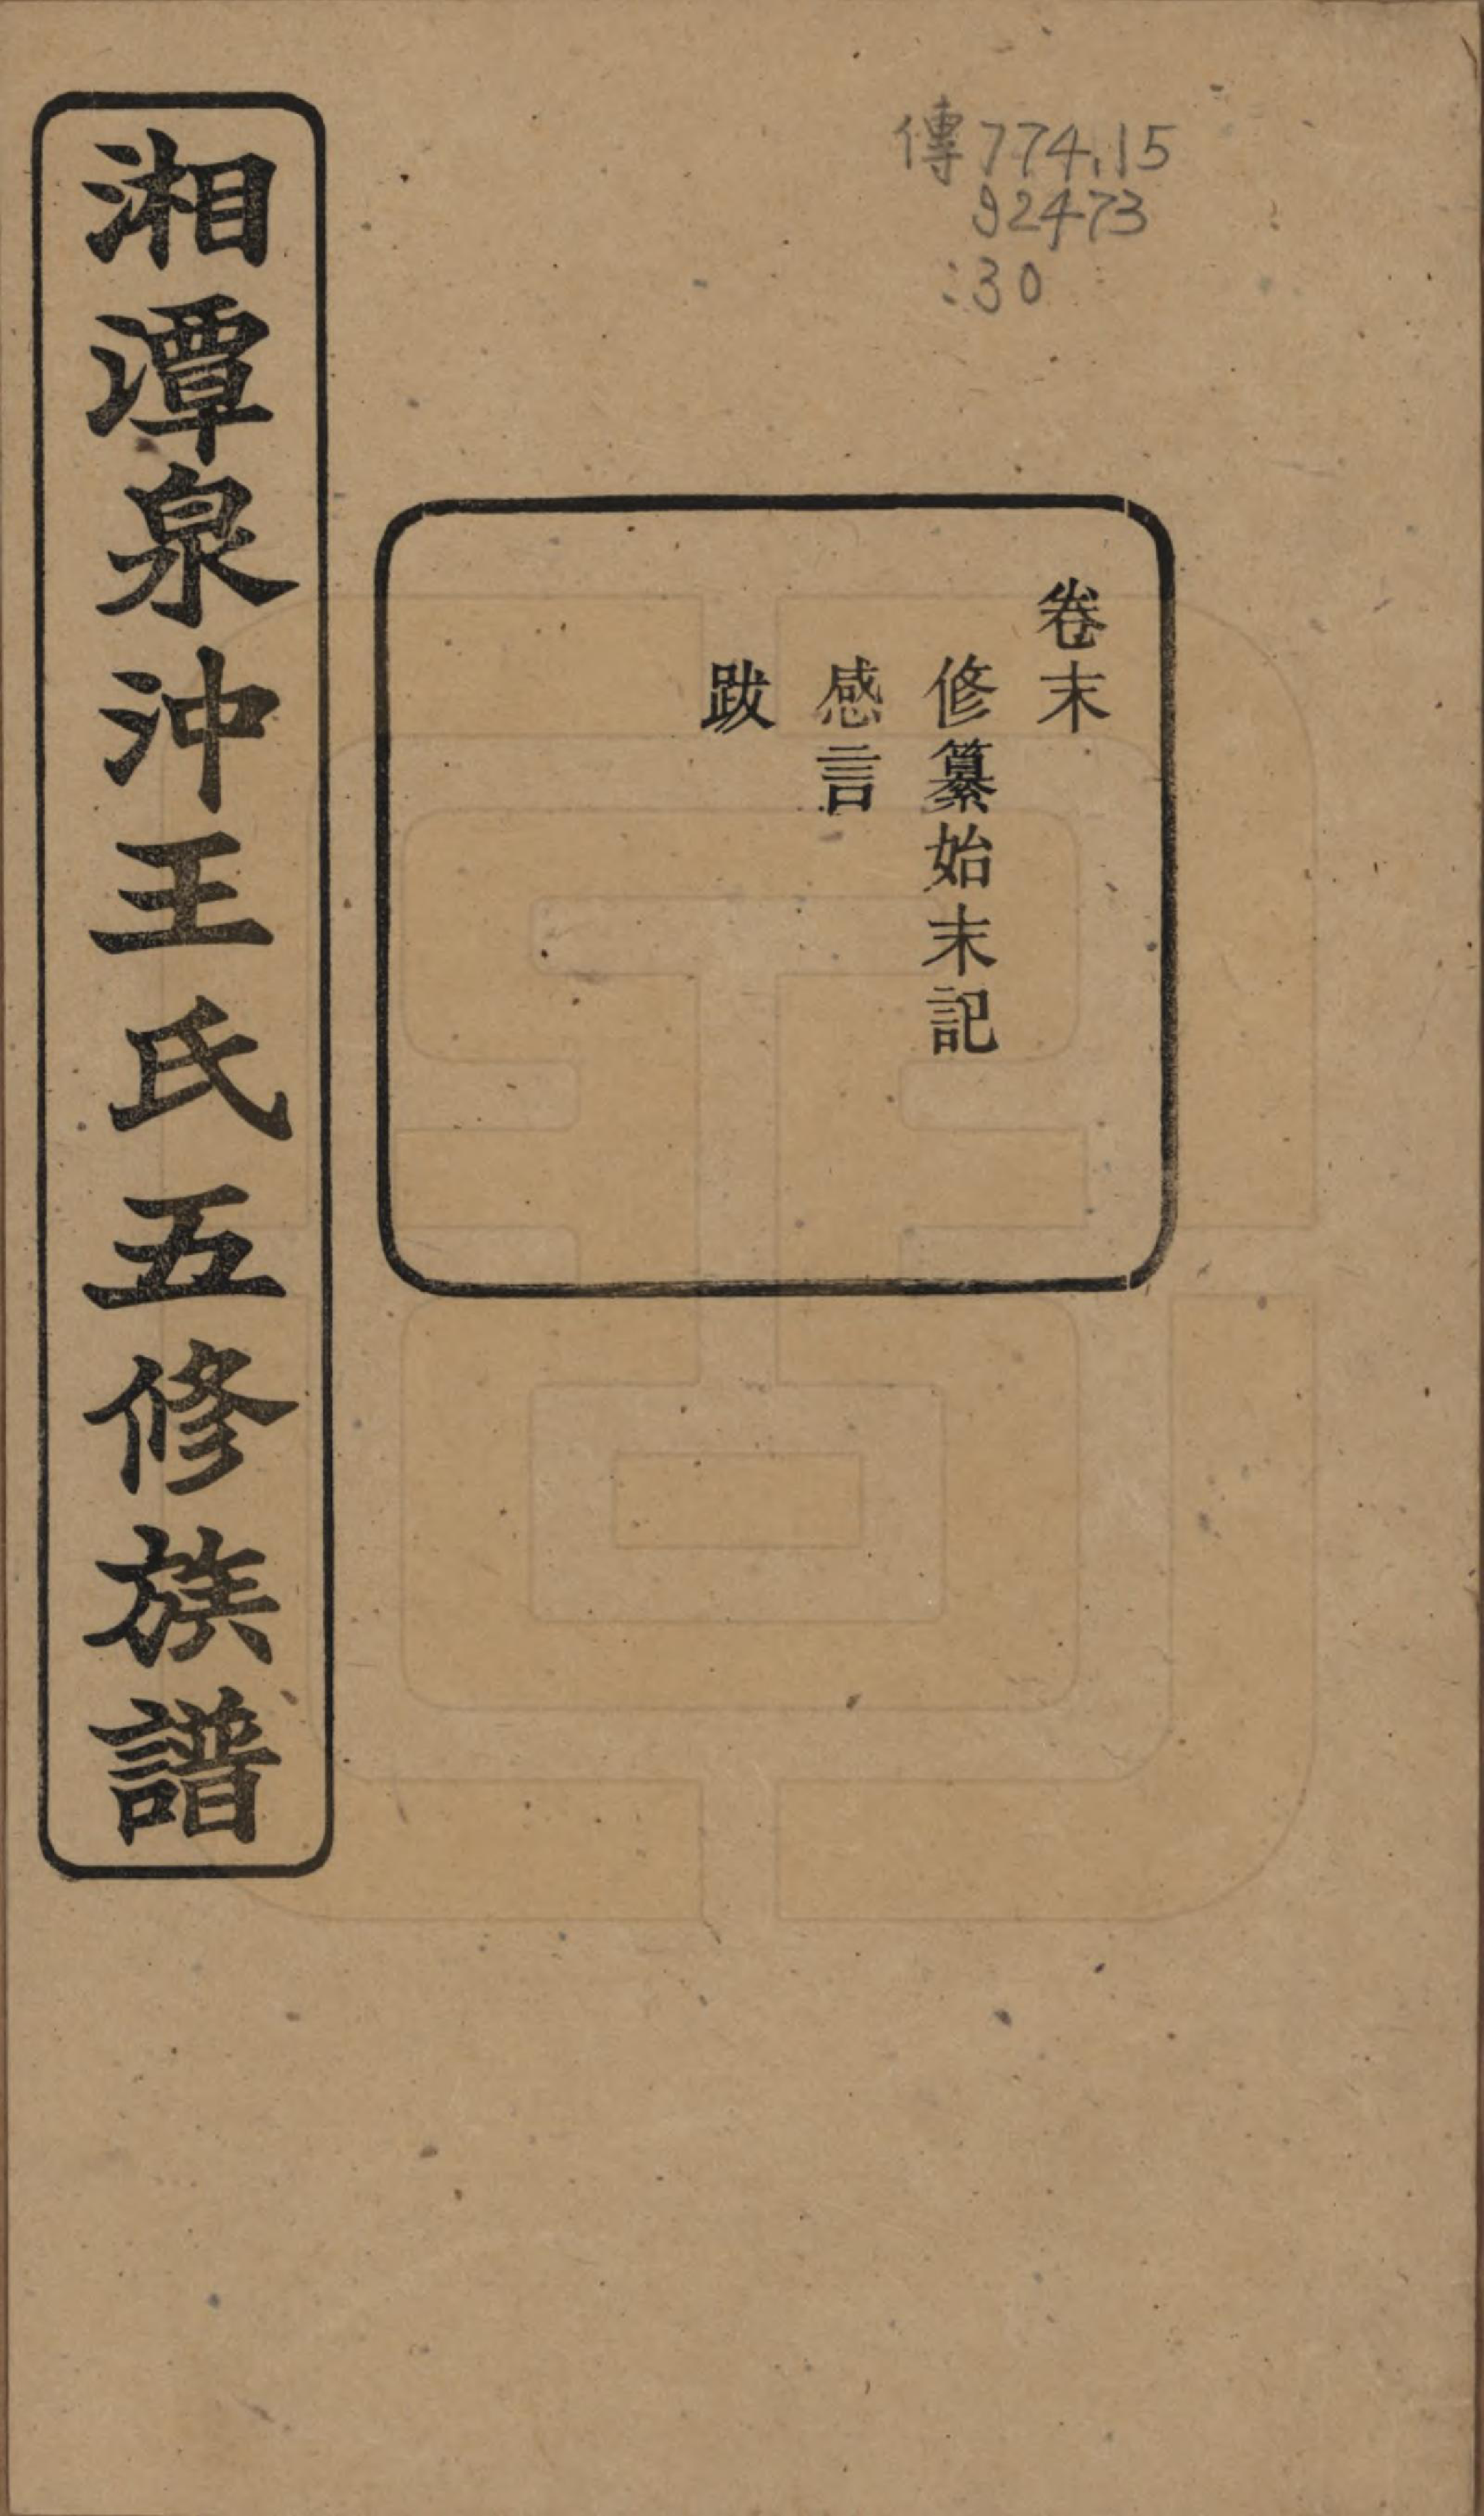 傳774.15
92473
:30
卷末
修纂始末記
感言
跋
湘潭泉沖王氏五修族譜